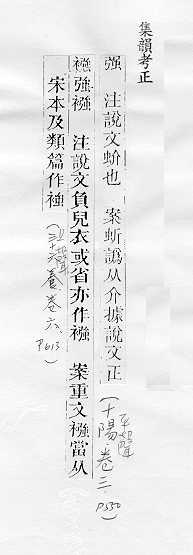 集韻考正
强 注說文蚧也 案蚚譌从介據說文正 (平聲 十陽·卷三 P.550)
襁强襁 注說文負兒衣或省亦作襁 案重文襁當从
宋本及類篇作𧛔 (上聲 養 卷六 P.613)